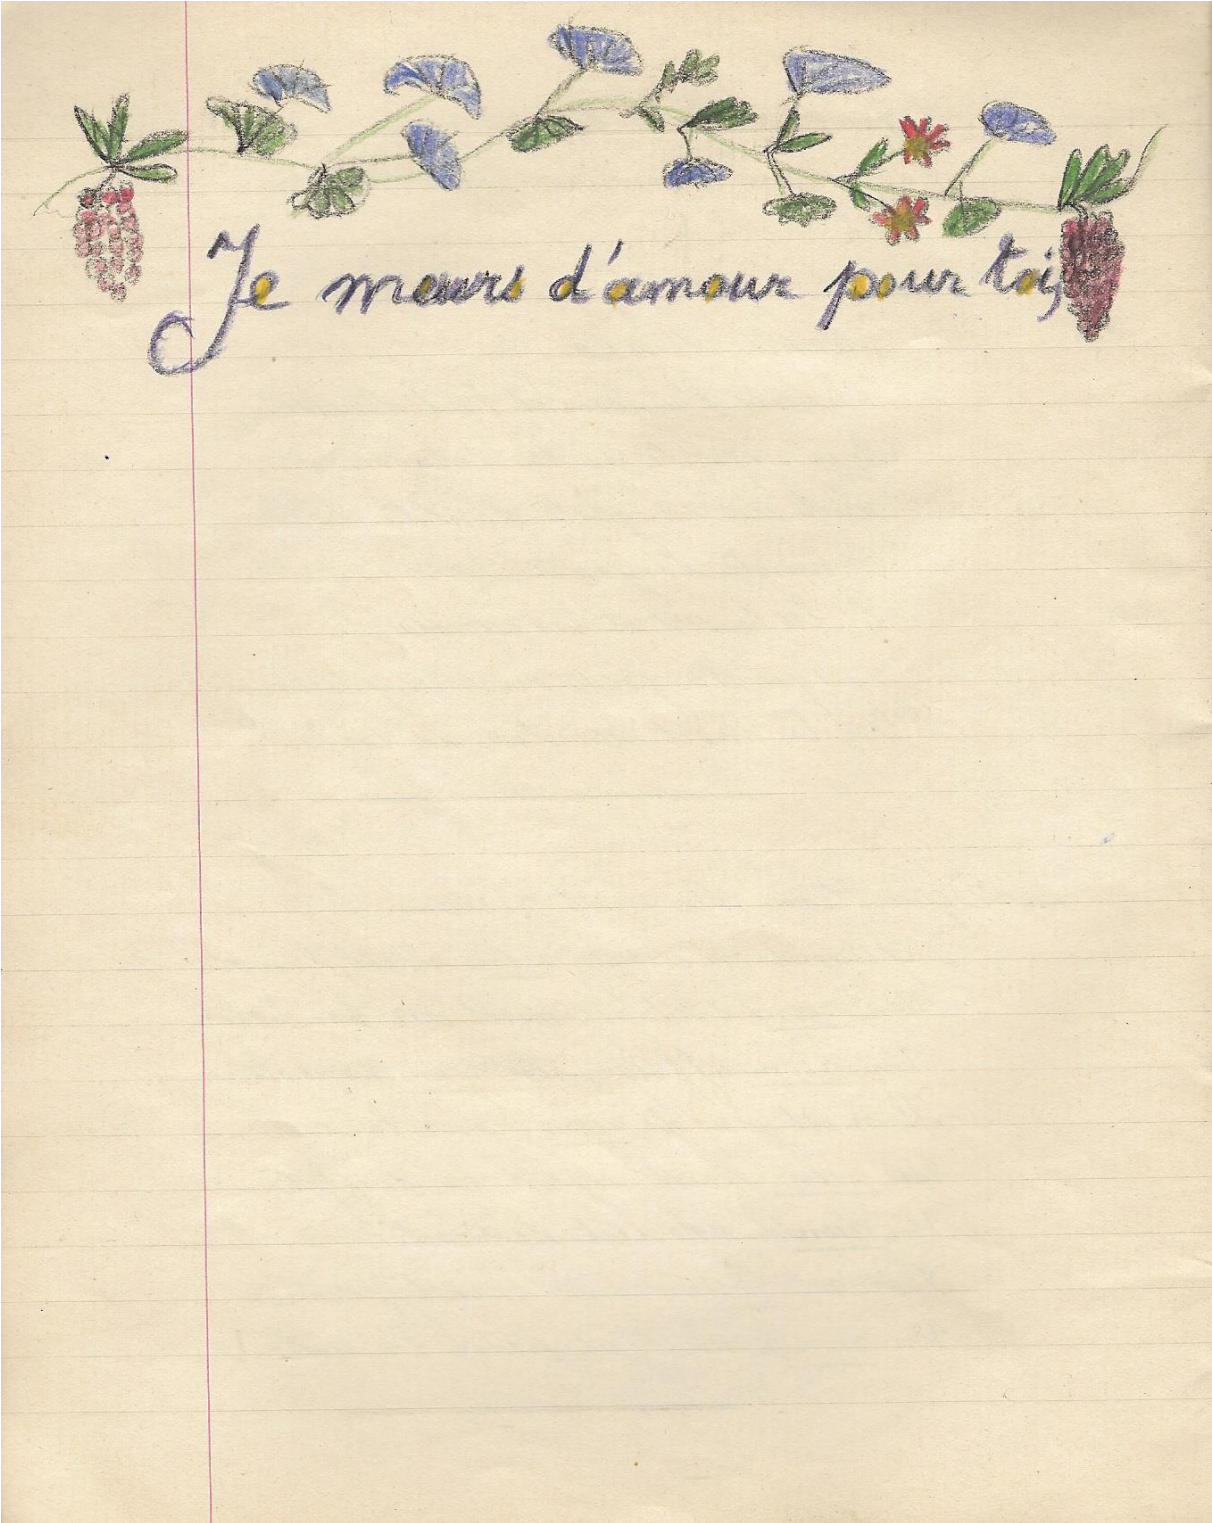 Je meurs d'amour pour toi,